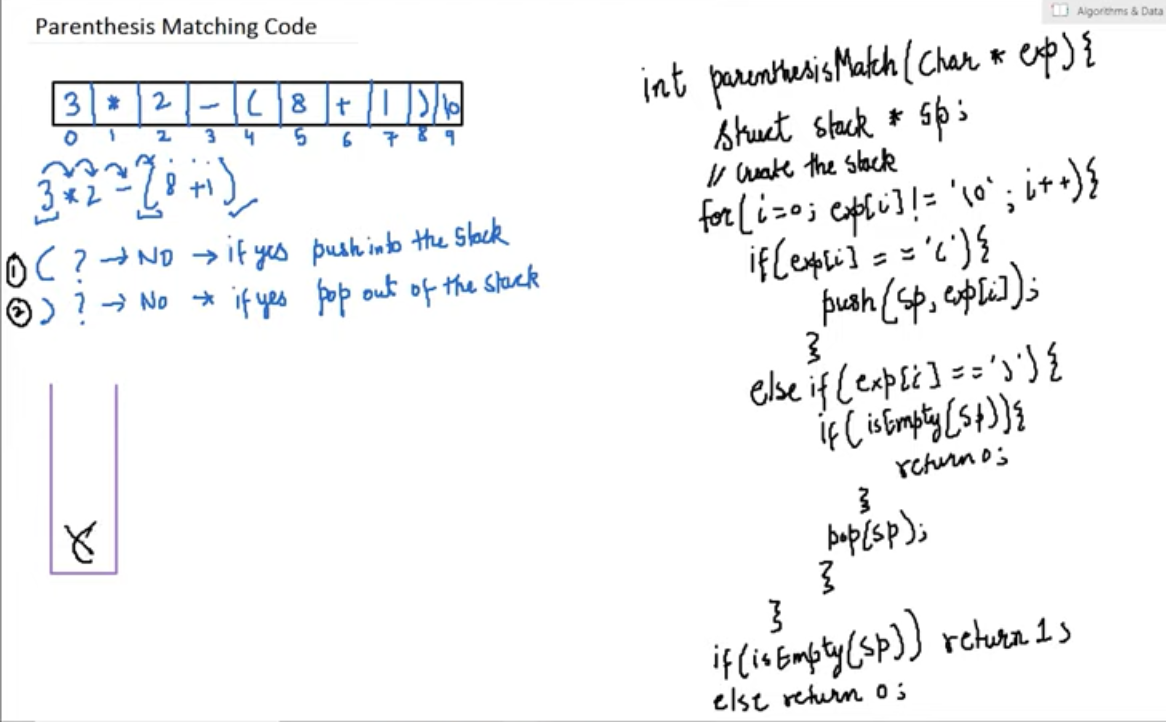 Algorithms & Data
Parenthesis Matching Code
3 * 2 - ( 8 + 1 ) \0
0 1 2 3 4 5 6 7 8 9
3 * 2 - (8 + 1)
① ( ? → NO → if yes push into the stack
② ) ? → No → if yes pop out of the stack
(
int parenthesisMatch(char * exp){
struct stack * sp;
// create the stack
for(i=0; exp[i]!= '\0'; i++){
if(exp[i] == '('){
push(sp, exp[i]);
}
else if(exp[i] == ')'){
if(isEmpty(sp)){
return 0;
}
pop(sp);
}
}
if(isEmpty(sp)) return 1;
else return 0;